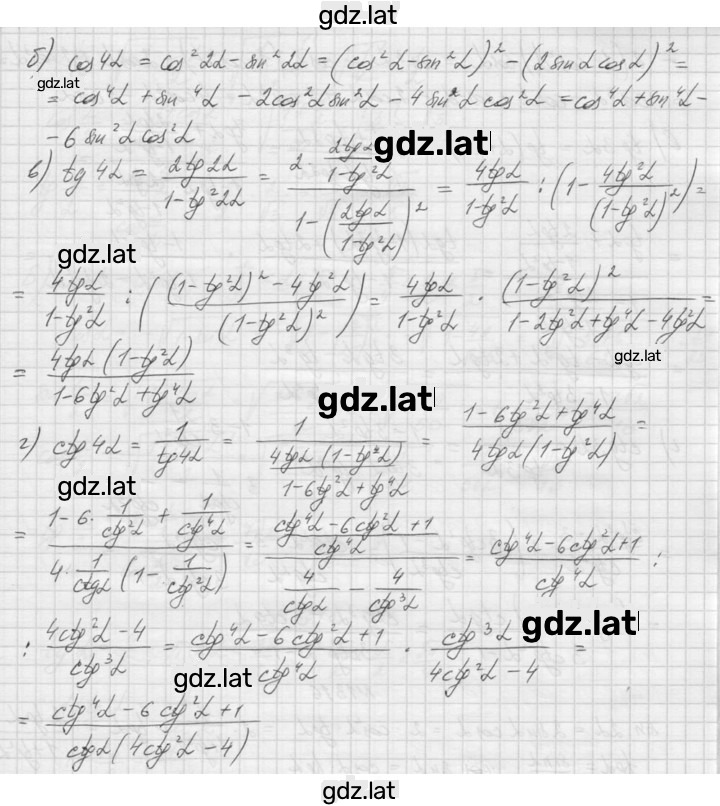 gdz.lat
б) cos4α = cos²2α - sin²2α = (cos²α - sin²α)² - (2 sinα cosα)² =
gdz.lat
= cos⁴α + sin⁴α - 2cos²α sin²α - 4 sin²α cos²α = cos⁴α + sin⁴α -
- 6 sin²α cos²α
gdz.lat
в) tg 4α = 2tg2α / (1 - tg²2α) = (2 · 2tgα / (1 - tg²α)) / (1 - (2tgα / (1 - tg²α))²) = 4tgα / (1 - tg²α) : (1 - 4tg²α / (1 - tg²α)²) =
gdz.lat
= 4tgα / (1 - tg²α) : (((1 - tg²α)² - 4tg²α) / (1 - tg²α)²) = 4tgα / (1 - tg²α) · (1 - tg²α)² / (1 - 2tg²α + tg⁴α - 4tg²α) =
gdz.lat
= 4tgα (1 - tg²α) / (1 - 6tg²α + tg⁴α)
gdz.lat
г) ctg 4α = 1 / tg4α = 1 / (4tgα (1 - tg²α) / (1 - 6tg²α + tg⁴α)) = (1 - 6tg²α + tg⁴α) / (4tgα (1 - tg²α)) =
gdz.lat
= (1 - 6 · 1/ctg²α + 1/ctg⁴α) / (4 · 1/ctgα (1 - 1/ctg²α)) = ((ctg⁴α - 6ctg²α + 1) / ctg⁴α) / (4/ctgα - 4/ctg³α) = (ctg⁴α - 6ctg²α + 1) / ctg⁴α :
gdz.lat
: (4ctg²α - 4) / ctg³α = (ctg⁴α - 6ctg²α + 1) / ctg⁴α · ctg³α / (4ctg²α - 4) =
gdz.lat
= (ctg⁴α - 6ctg²α + 1) / (ctgα (4ctg²α - 4))
gdz.lat